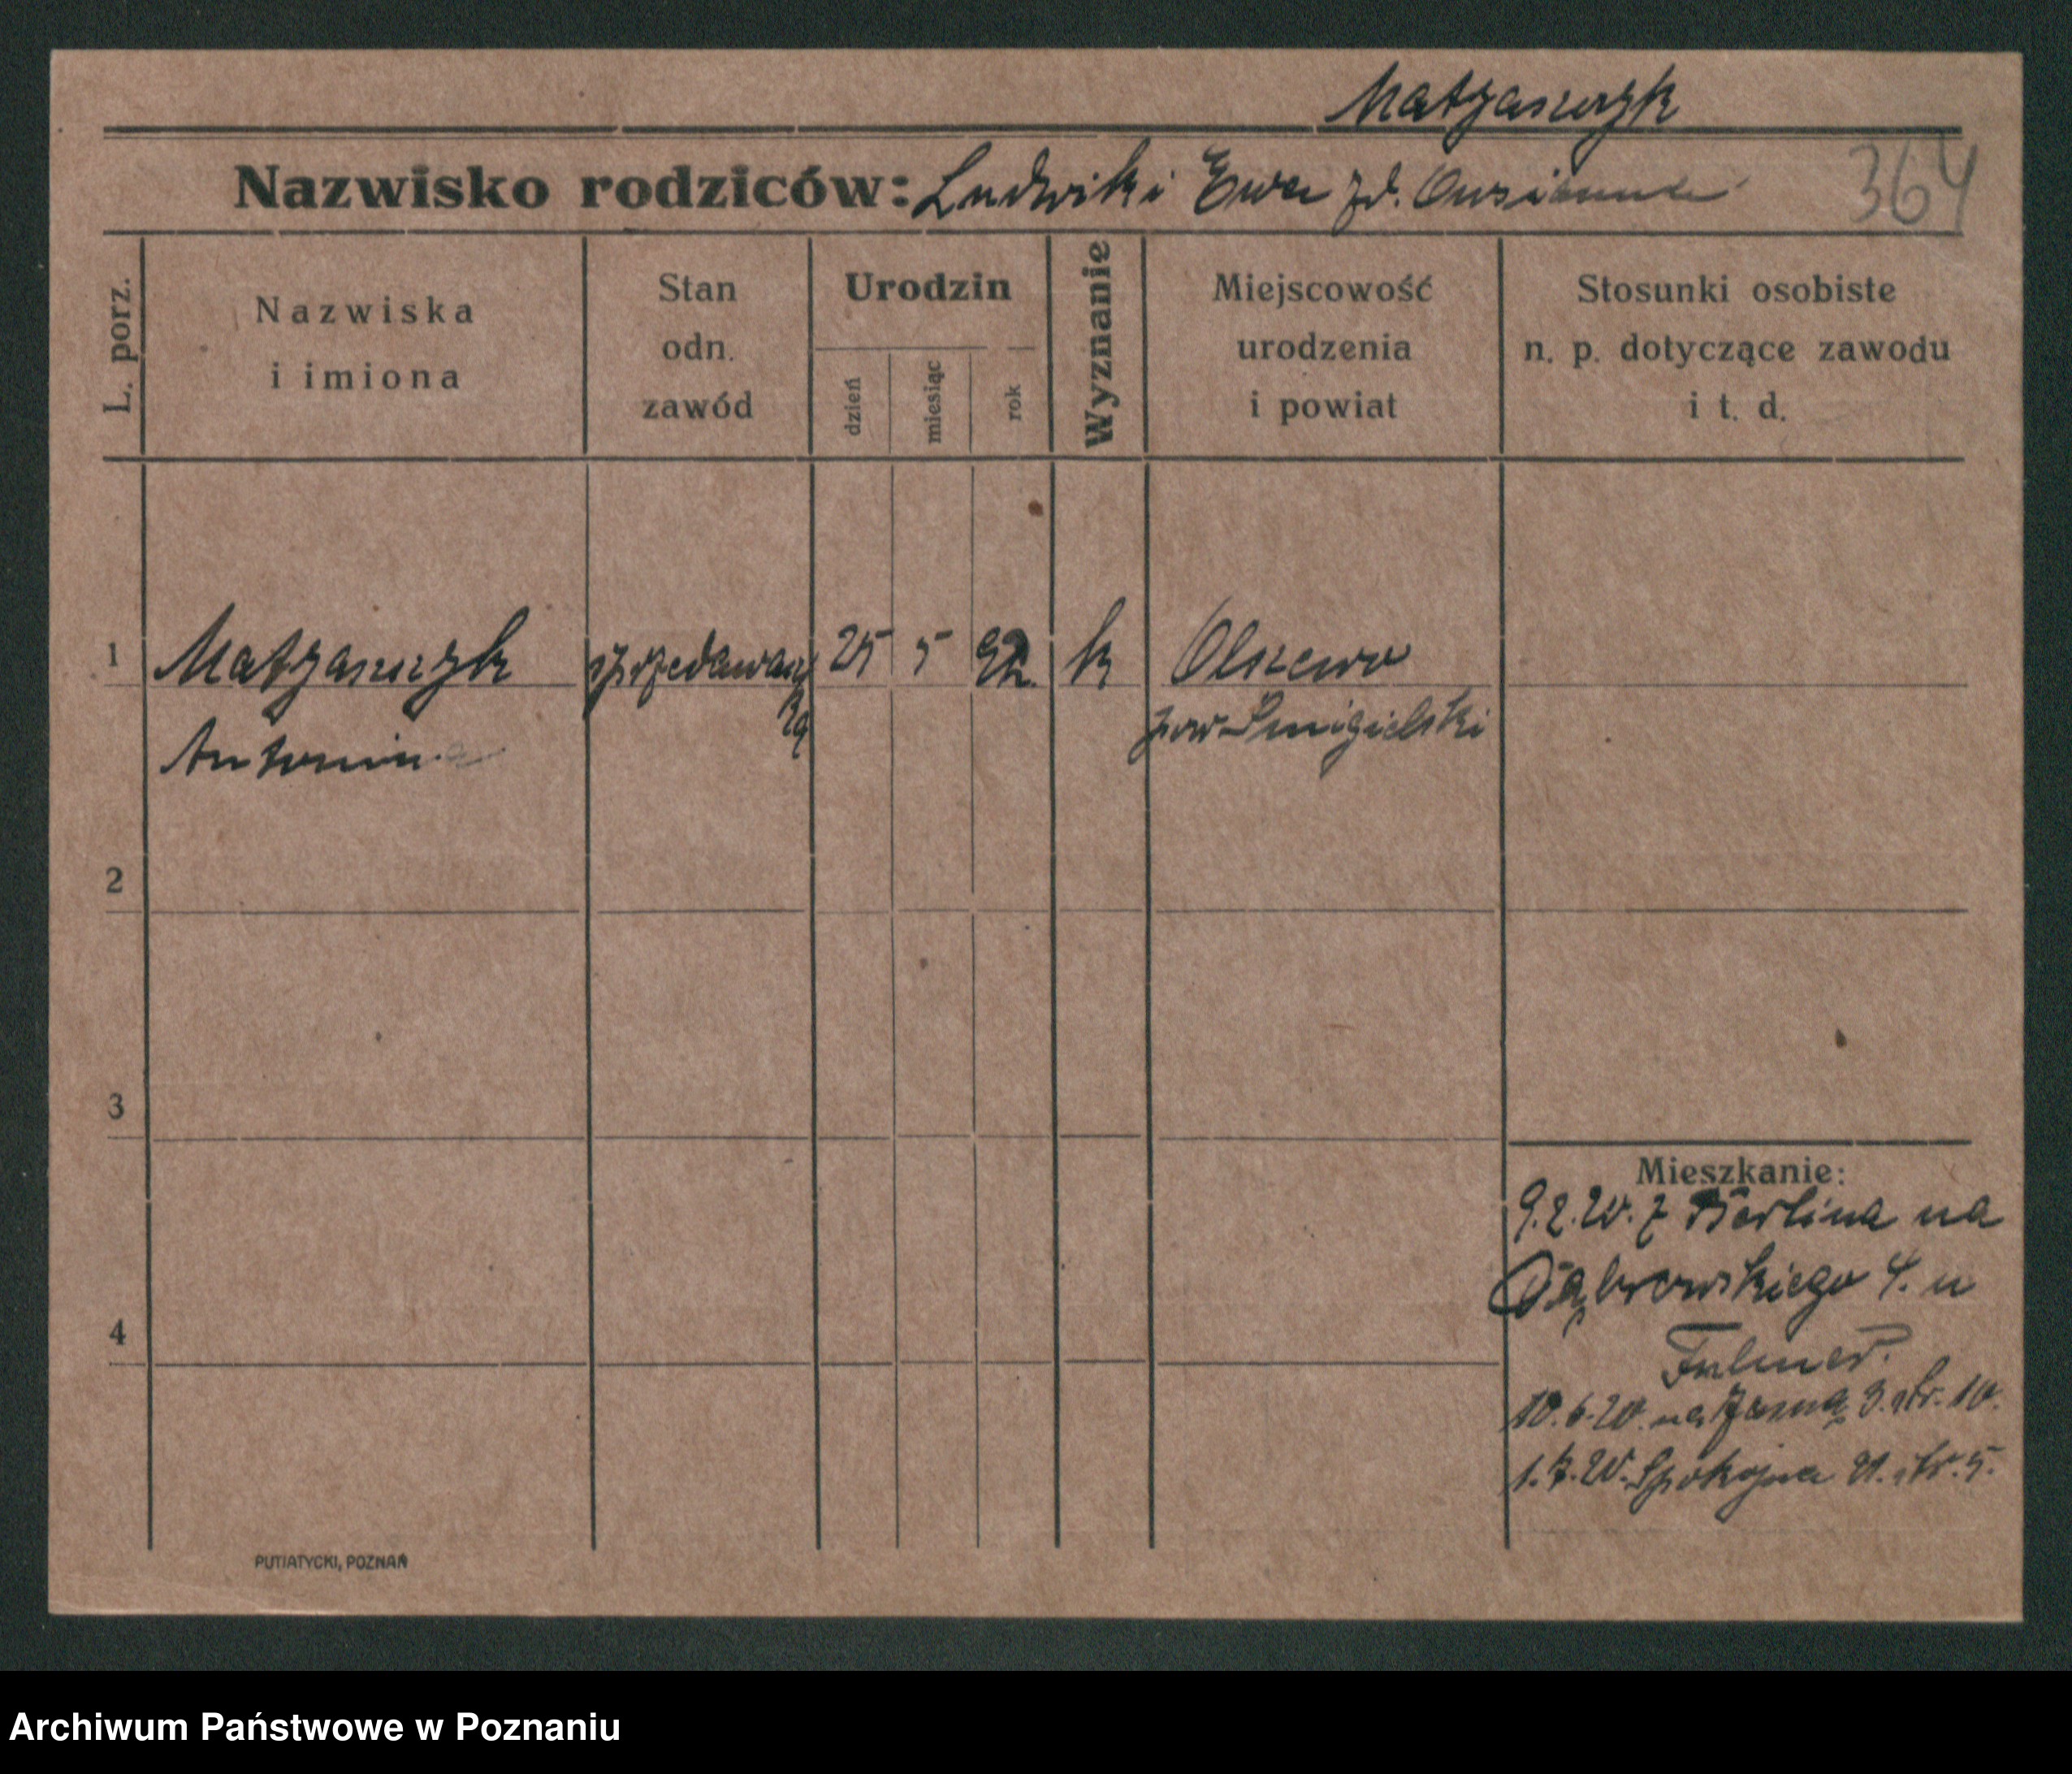 Matyaszczyk
Nazwisko rodziców: Ludwik i Ewa zd.
364
L. porz.
Nazwiska
i imiona
Stan
odn.
zawód
Urodzin
dzień
miesiąc
rok
Wyznanie
Miejscowość
urodzenia
i powiat
Stosunki osobiste
n. p. dotyczące zawodu
i t. d.
1
Matyaszczyk
Antonina
sprzedawacz
ka
25
5
k
Olszewo
pow Smigielski
2
3
4
Mieszkanie:
9.2.20. z Berlina na
Dąbrowskiego 4. u
10.6.20. na Jasną 3. str. 10.
1.7.20. Spokojna 21. str. 5.
PUTIATYCKI, POZNAŃ
Archiwum Państwowe w Poznaniu